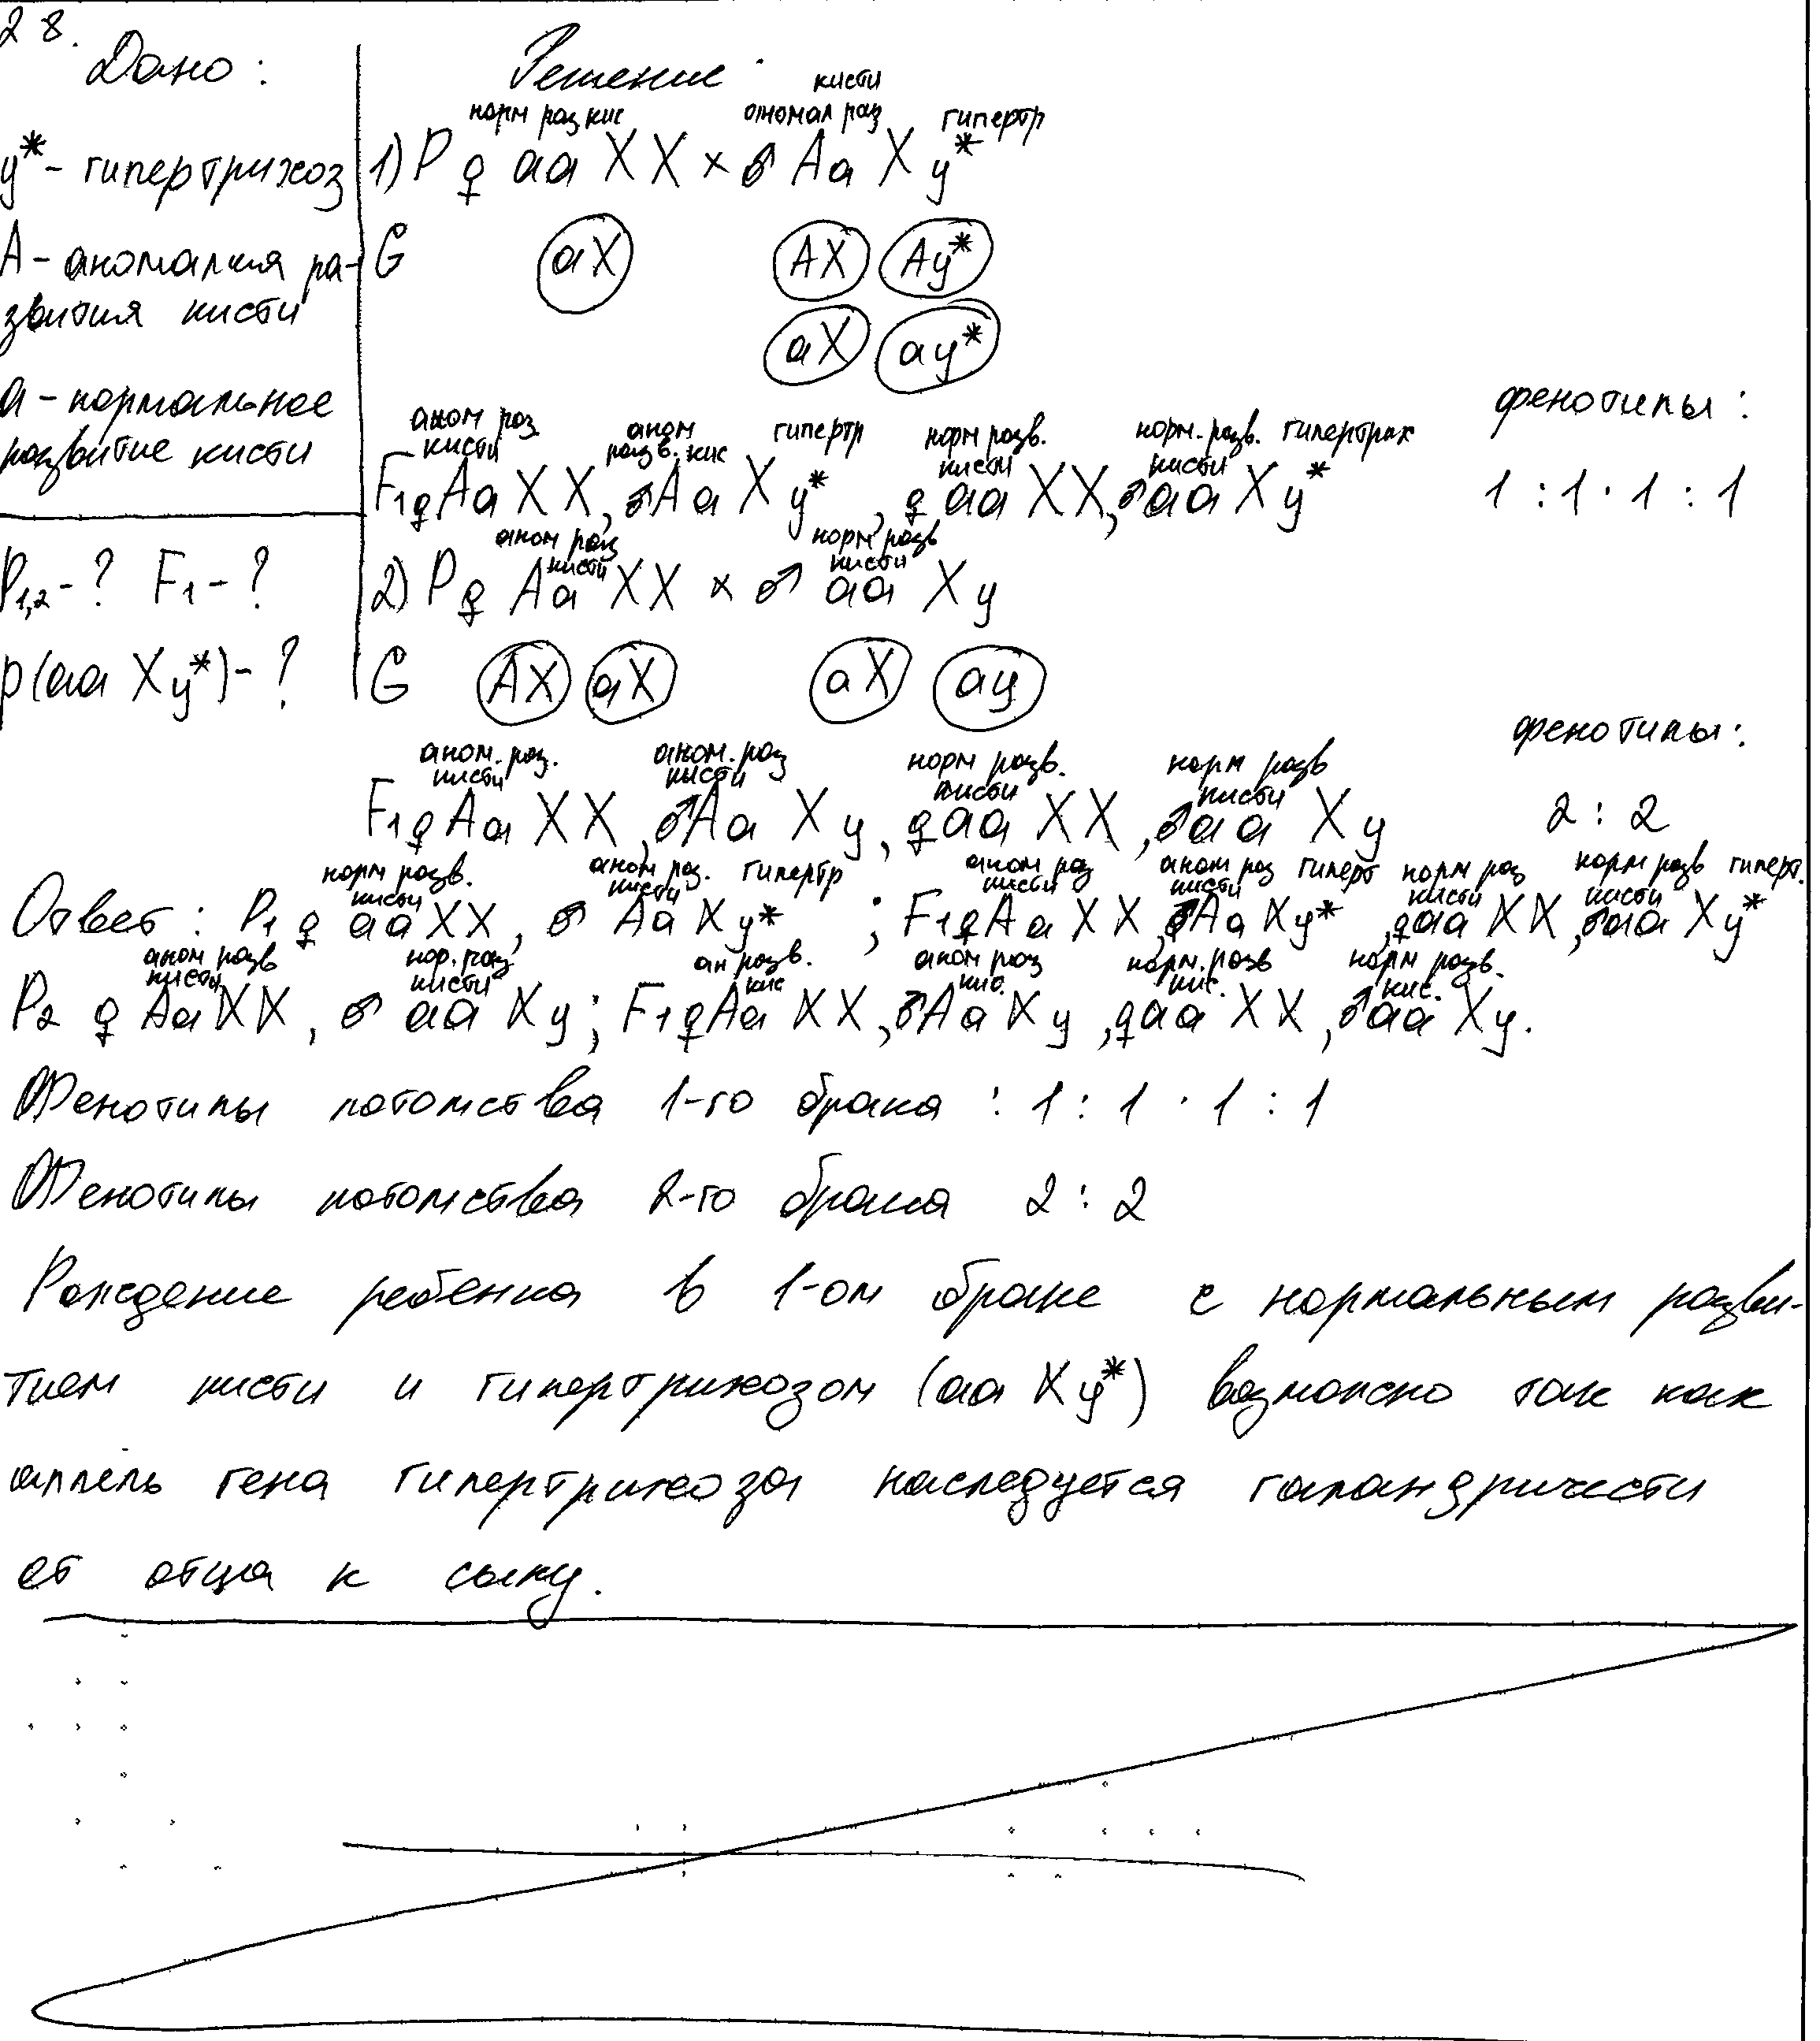 28.
Дано:
Решение
y* - гипертрихоз
А - аномалия ра-
звития кисти
а - нормальное
развитие кисти
P₁,₂ - ? F₁ - ?
p(aa Xy*) - ?
норм раз кис кисти аномал раз гипертр
1) P ♀ aa XX × ♂ Aa Xy*
G aX AX Ay*
aX ay*
фенотипы:
аном раз кисти аном разв. кис гипертр норм разв. кисти норм. разв. кисти гипертрих
F₁ ♀ Aa XX, ♂ Aa Xy*, ♀ aa XX, ♂ aa Xy* 1 : 1 · 1 : 1
аном раз кисти норм разв кисти
2) P ♀ Aa XX × ♂ aa Xy
G AX aX aX ay
фенотипы:
аном. раз. кисти аном. раз кисти норм разв. кисти норм разв кисти
F₁ ♀ Aa XX, ♂ Aa Xy, ♀ aa XX, ♂ aa Xy 2 : 2
норм разв. кисти аном раз. кисти гипертр аном раз кисти аном раз кисти гиперт норм раз кисти норм разв кисти гиперт.
Ответ: P₁ ♀ aa XX, ♂ Aa Xy*; F₁ ♀ Aa XX, ♂ Aa Xy*, ♀ aa XX, ♂ aa Xy*
аном разв кисти нор. раз кисти ан разв. кис аном раз кис. норм. разв кис. норм разв. кис.
P₂ ♀ Aa XX, ♂ aa Xy; F₁ ♀ Aa XX, ♂ Aa Xy, ♀ aa XX, ♂ aa Xy.
Фенотипы потомства 1-го брака : 1 : 1 · 1 : 1
Фенотипы потомства 2-го брака 2 : 2
Рождение ребенка в 1-ом браке с нормальным разви-
тием кисти и гипертрихозом (aa Xy*) возможно так как
аллель гена гипертрихоза наследуется голандричести
от отца к сыну.